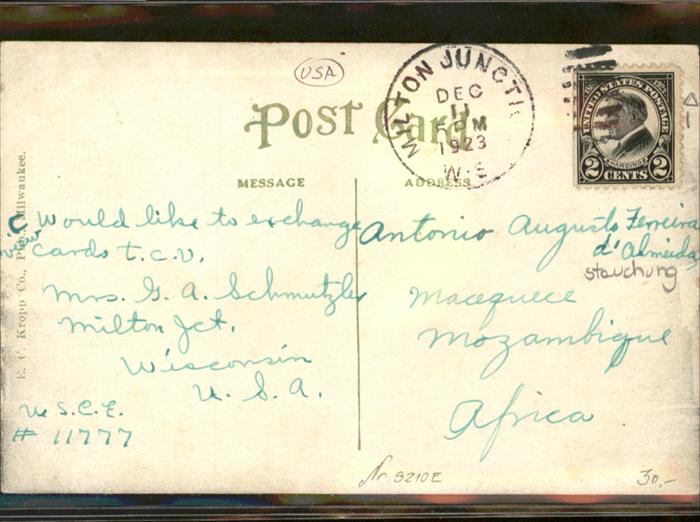 USA
MILTON JUNCTI
DEC
11
5 PM
1923
W·S
UNITED STATES POSTAGE
HARDING
2 CENTS 2
Post Card
MESSAGE
ADDRESS
E. C. Kropp Co., Milwaukee.
Would like to exchange
view cards t.c.v.
Mrs. G. A. Schmutzler
Milton Jct.
Wisconsin
U. S. A.
U.S.C.E.
# 11777
Antonio Augusto Ferreira
d'Almeida
stauchung
Macequece
Mozambique
Africa
Nr 9210E
30.-